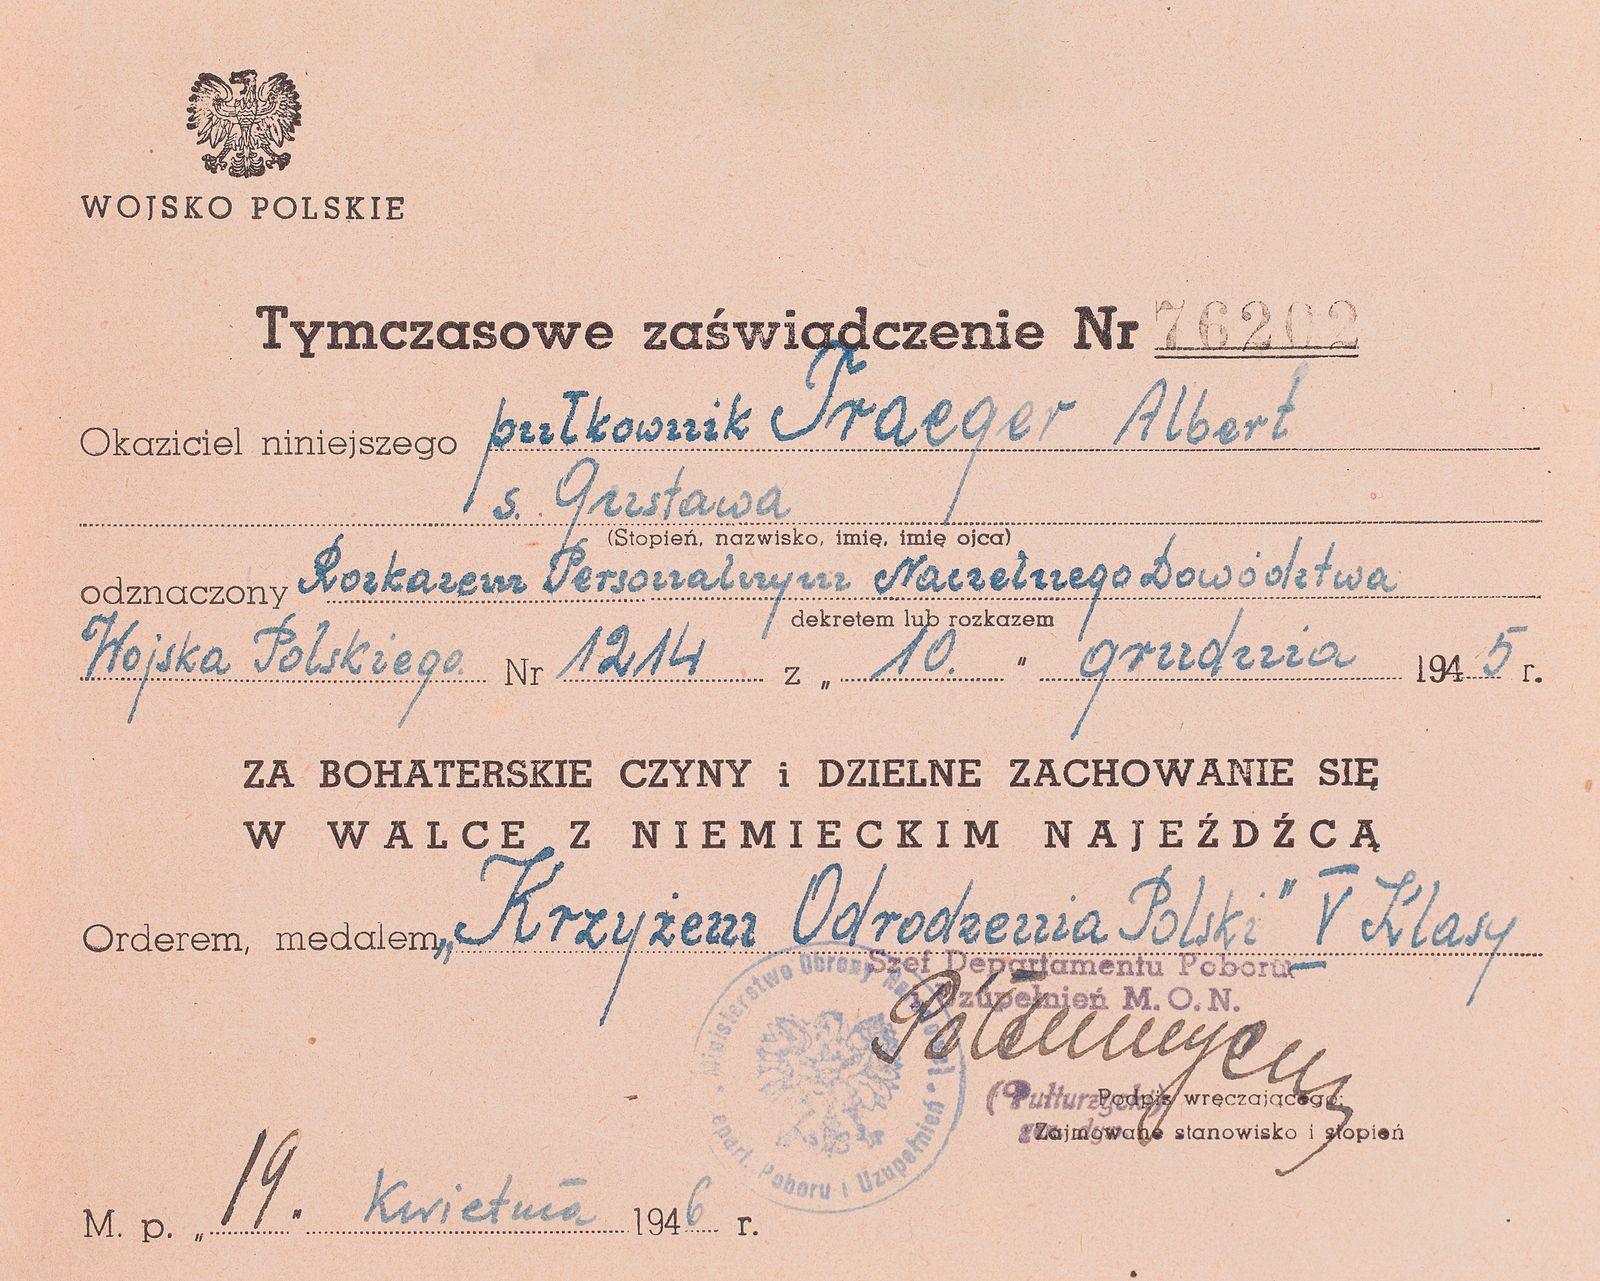 WOJSKO POLSKIE
Tymczasowe zaświadczenie Nr 76202
Okaziciel niniejszego pułkownik Traeger Albert
s. Gustawa
(Stopień, nazwisko, imię, imię ojca)
odznaczony Rozkazem Personalnym Naczelnego Dowództwa
dekretem lub rozkazem
Wojska Polskiego Nr 1214 z „ 10. " grudnia 1945 r.
ZA BOHATERSKIE CZYNY i DZIELNE ZACHOWANIE SIĘ
W WALCE Z NIEMIECKIM NAJEŹDŹCĄ
Orderem, medalem „Krzyżem Odrodzenia Polski" V Klasy
Szef Departamentu Poboru
i Uzupełnień M.O.N.
Ministerstwo Obrony Depart. Poboru i Uzupełnień
Podpis wręczającego;
Zajmowane stanowisko i stopień
M. p. „19." Kwietnia 1946 r.